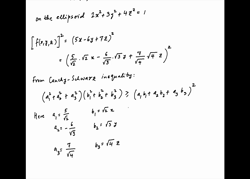 on the ellipsoid 2x²+3y²+4z² = 1
[f(x,y,z)]² = (5x-6y+7z)²
= (5/√2 · √2 x - 6/√3 √3 z + 7/√4 √4 z)²
From Cauchy-Schwarz inequality:
(a₁²+a₂²+a₃²)(b₁²+b₂²+b₃²) ≥ (a₁b₁+a₂b₂+a₃b₃)²
Here a₁ = 5/√2 b₁ = √2 x
a₂ = -6/√3 b₂ = √3 z
a₃ = 7/√4 b₃ = √4 z